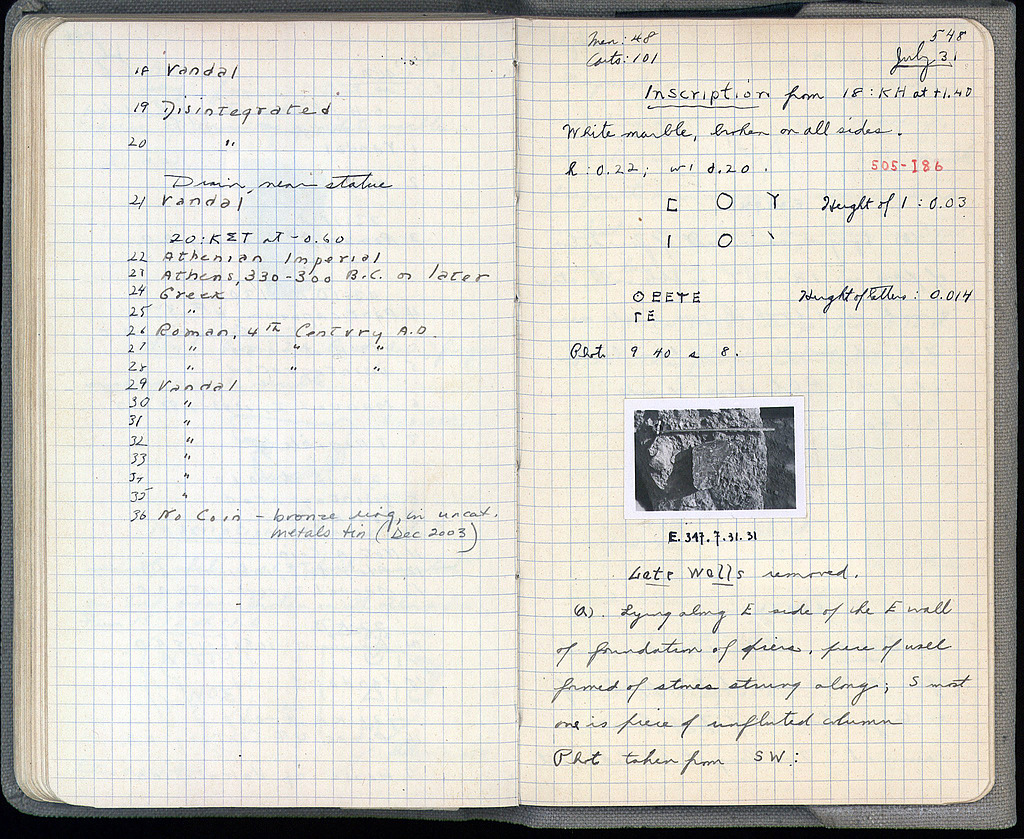 18 Vandal
19 Disintegrated
20 "
Drain, near statue
21 Vandal
20:KΣT at -0.60
22 Athenian Imperial
23 Athens, 330-300 B.C. or later
24 Greek
25 "
26 Roman, 4TH Century A.D.
27 " " "
28 " " "
29 Vandal
30 "
31 "
32 "
33 "
34 "
35 "
36 No Coin - bronze ring, in uncat.
metals tin (Dec 2003)
548
Men: 48
Carts: 101
July 31
Inscription from 18:KH at +1.40
White marble, broken on all sides.
h: 0.22; w: 0.20.
505-I86
Ϲ Ο Υ Height of l: 0.03
Ι Ο `
Ο Ε Ε Τ Ε Height of letters: 0.014
Γ Ε
Phot 9 40 8.
E.347.7.31.31
Late Walls removed.
(a). Lying along E side of the E wall
of foundation of piers, piece of wall
formed of stones strung along; S most
one is piece of unfluted column
Phot taken from SW: